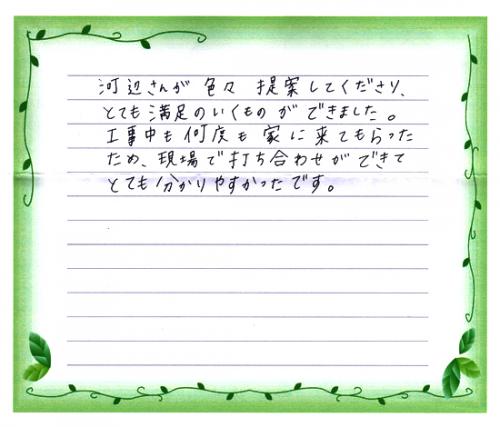 河辺さんが 色々 提案してくださり、
とても満足のいくものができました。
工事中も何度も家に来てもらった
ため、現場で打ち合わせができて
とても分かりやすかったです。